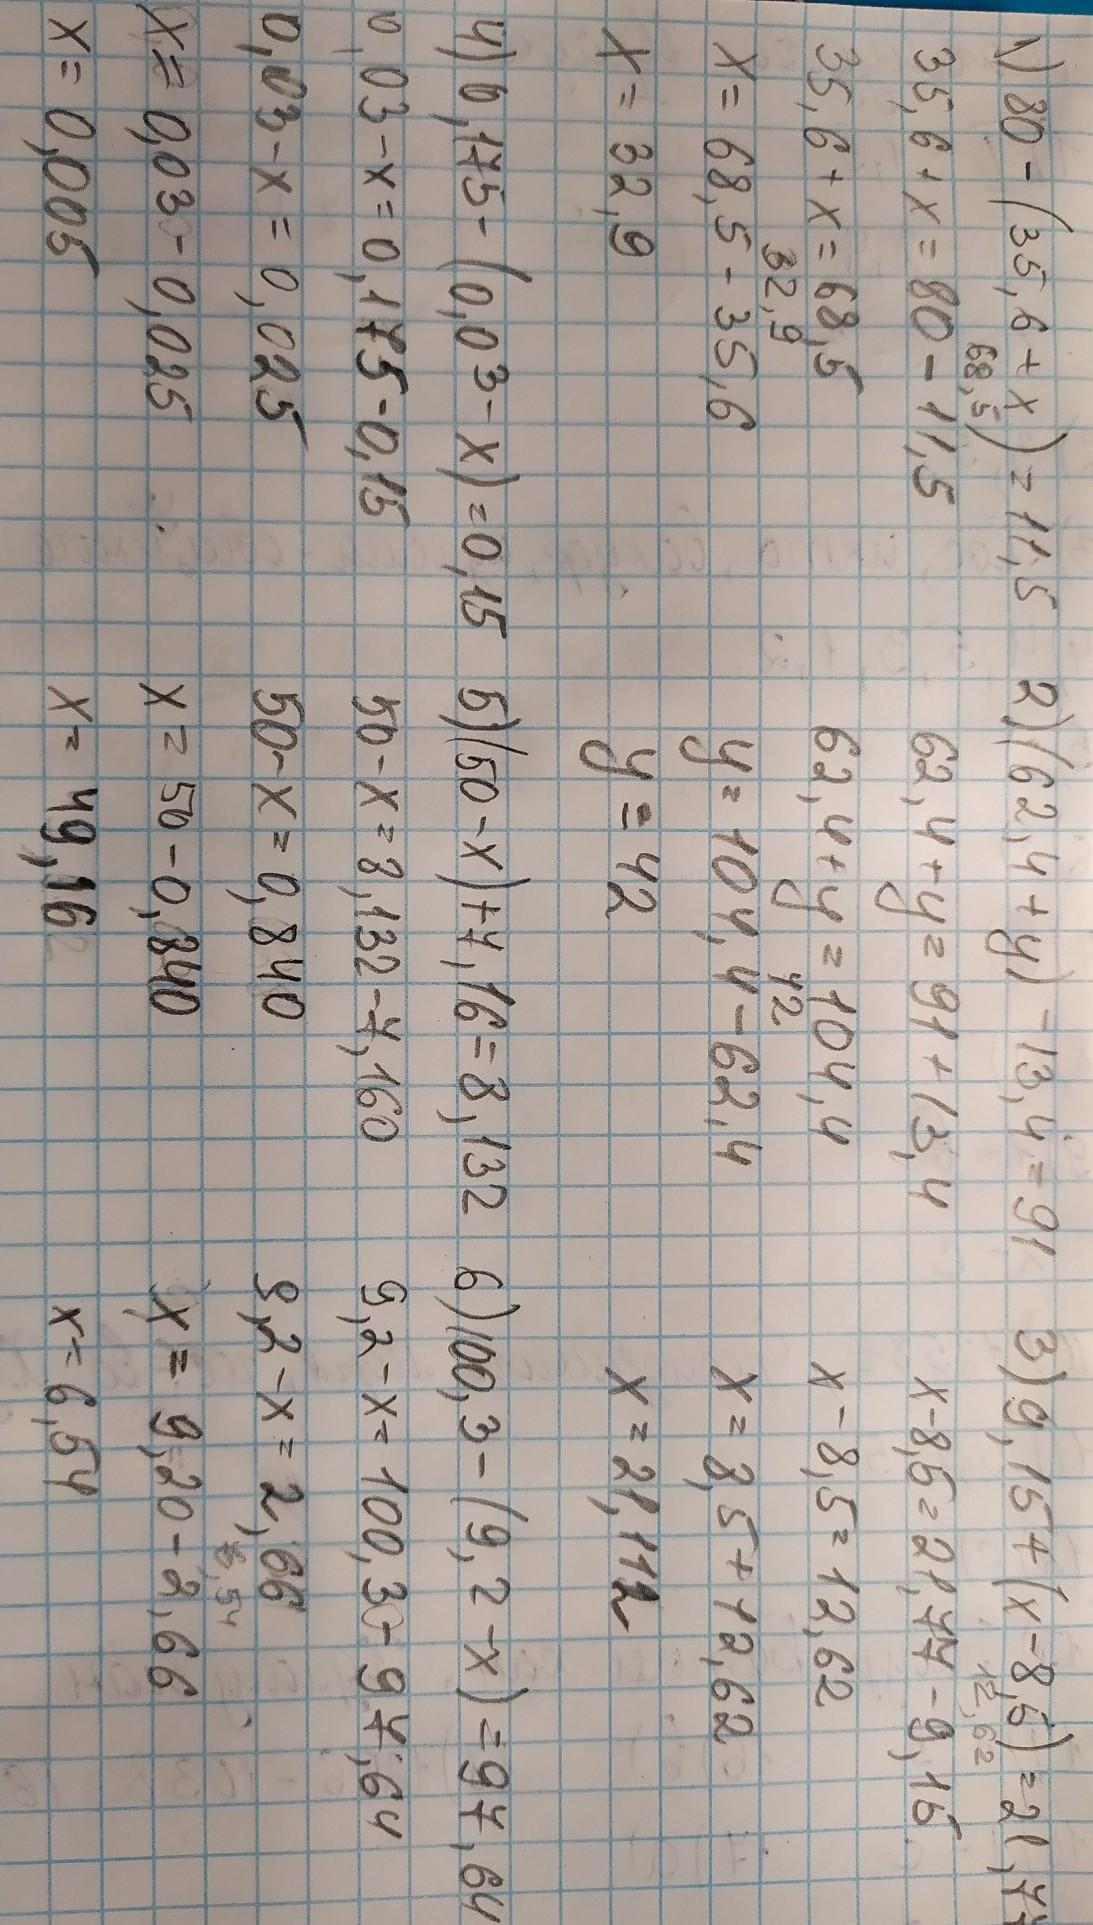 1) 80 - (35,6 + x) = 11,5
68,5
35,6 + x = 80 - 11,5
35,6 + x = 68,5
32,9
x = 68,5 - 35,6
x = 32,9
2) (62,4 + y) - 13,4 = 91
62,4 + y = 91 + 13,4
62,4 + y = 104,4
42
y = 104,4 - 62,4
y = 42
3) 9,15 + (x - 8,5) = 21,77
12,62
x - 8,5 = 21,77 - 9,15
x - 8,5 = 12,62
x = 8,5 + 12,62
x = 21,112
4) 0,175 - (0,03 - x) = 0,15
0,03 - x = 0,175 - 0,15
0,03 - x = 0,025
x = 0,03 - 0,025
x = 0,005
5) (50 - x) + 7,16 = 8,132
50 - x = 8,132 - 7,160
50 - x = 0,840
x = 50 - 0,840
x = 49,16
6) 100,3 - (9,2 - x) = 97,64
9,2 - x = 100,30 - 97,64
9,2 - x = 2,66
6,54
x = 9,20 - 2,66
x = 6,54